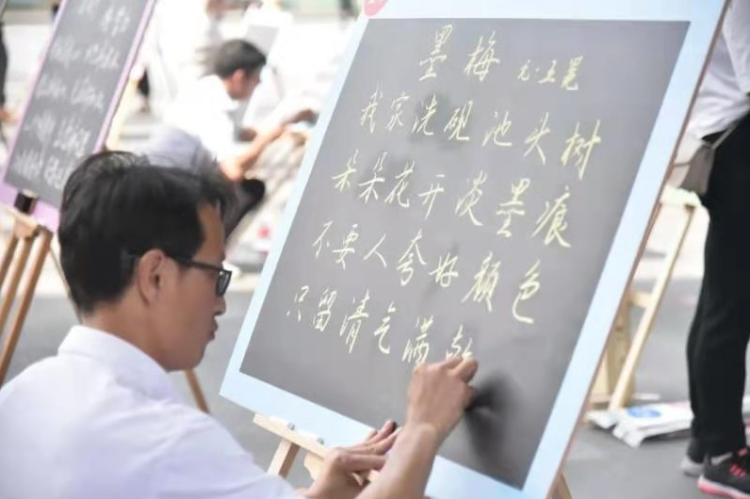 墨梅 元·王冕
我家洗砚池头树
朵朵花开淡墨痕
不要人夸好颜色
只留清气满乾